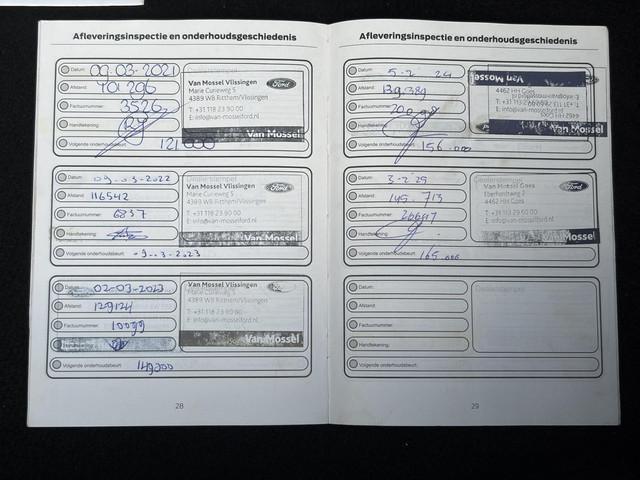 Afleveringsinspectie en onderhoudsgeschiedenis
Datum: 09-03-2021
Afstand: 101296
Factuurnummer: 3526
Handtekening:
Volgende onderhoudsbeurt: 121000
Van Mossel Vlissingen
Marie Curieweg 5
4389 WB Ritthem/Vlissingen
T: +31 118 23 90 00
E: info@van-mosselford.nl
Ford
Van Mossel
Datum: 09-03-2022
Afstand: 116542
Factuurnummer: 6837
Handtekening:
Volgende onderhoudsbeurt: 09-03-2023
Dealerstempel
Van Mossel Vlissingen
Marie Curieweg 5
4389 WB Ritthem/Vlissingen
T: +31 118 23 90 00
E: info@van-mosselford.nl
Ford
Van Mossel
Datum: 02-03-2023
Afstand: 129124
Factuurnummer: 10099
Handtekening:
Volgende onderhoudsbeurt: 149200
Van Mossel Vlissingen
Marie Curieweg 5
4389 WB Ritthem/Vlissingen
T: +31 118 23 90 00
E: info@van-mosselford.nl
Van Mossel
28
Afleveringsinspectie en onderhoudsgeschiedenis
Datum: 5-2 24
Afstand: 139389
Factuurnummer:
Handtekening:
Volgende onderhoudsbeurt: 156.000
Van Mossel
4462 HH Goes
Van Mossel
Datum: 3-2-25
Afstand: 145.713
Factuurnummer:
Handtekening:
Volgende onderhoudsbeurt: 165.000
Dealerstempel
Van Mossel Goes
4462 HH Goes
Ford
Mossel
Datum:
Afstand:
Factuurnummer:
Handtekening:
Volgende onderhoudsbeurt:
Dealerstempel
29